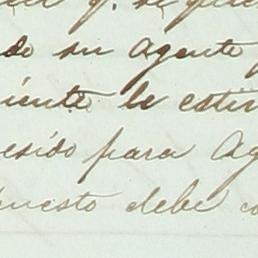 de su Agente
iente le estin
esido para Ag
puesto debe co